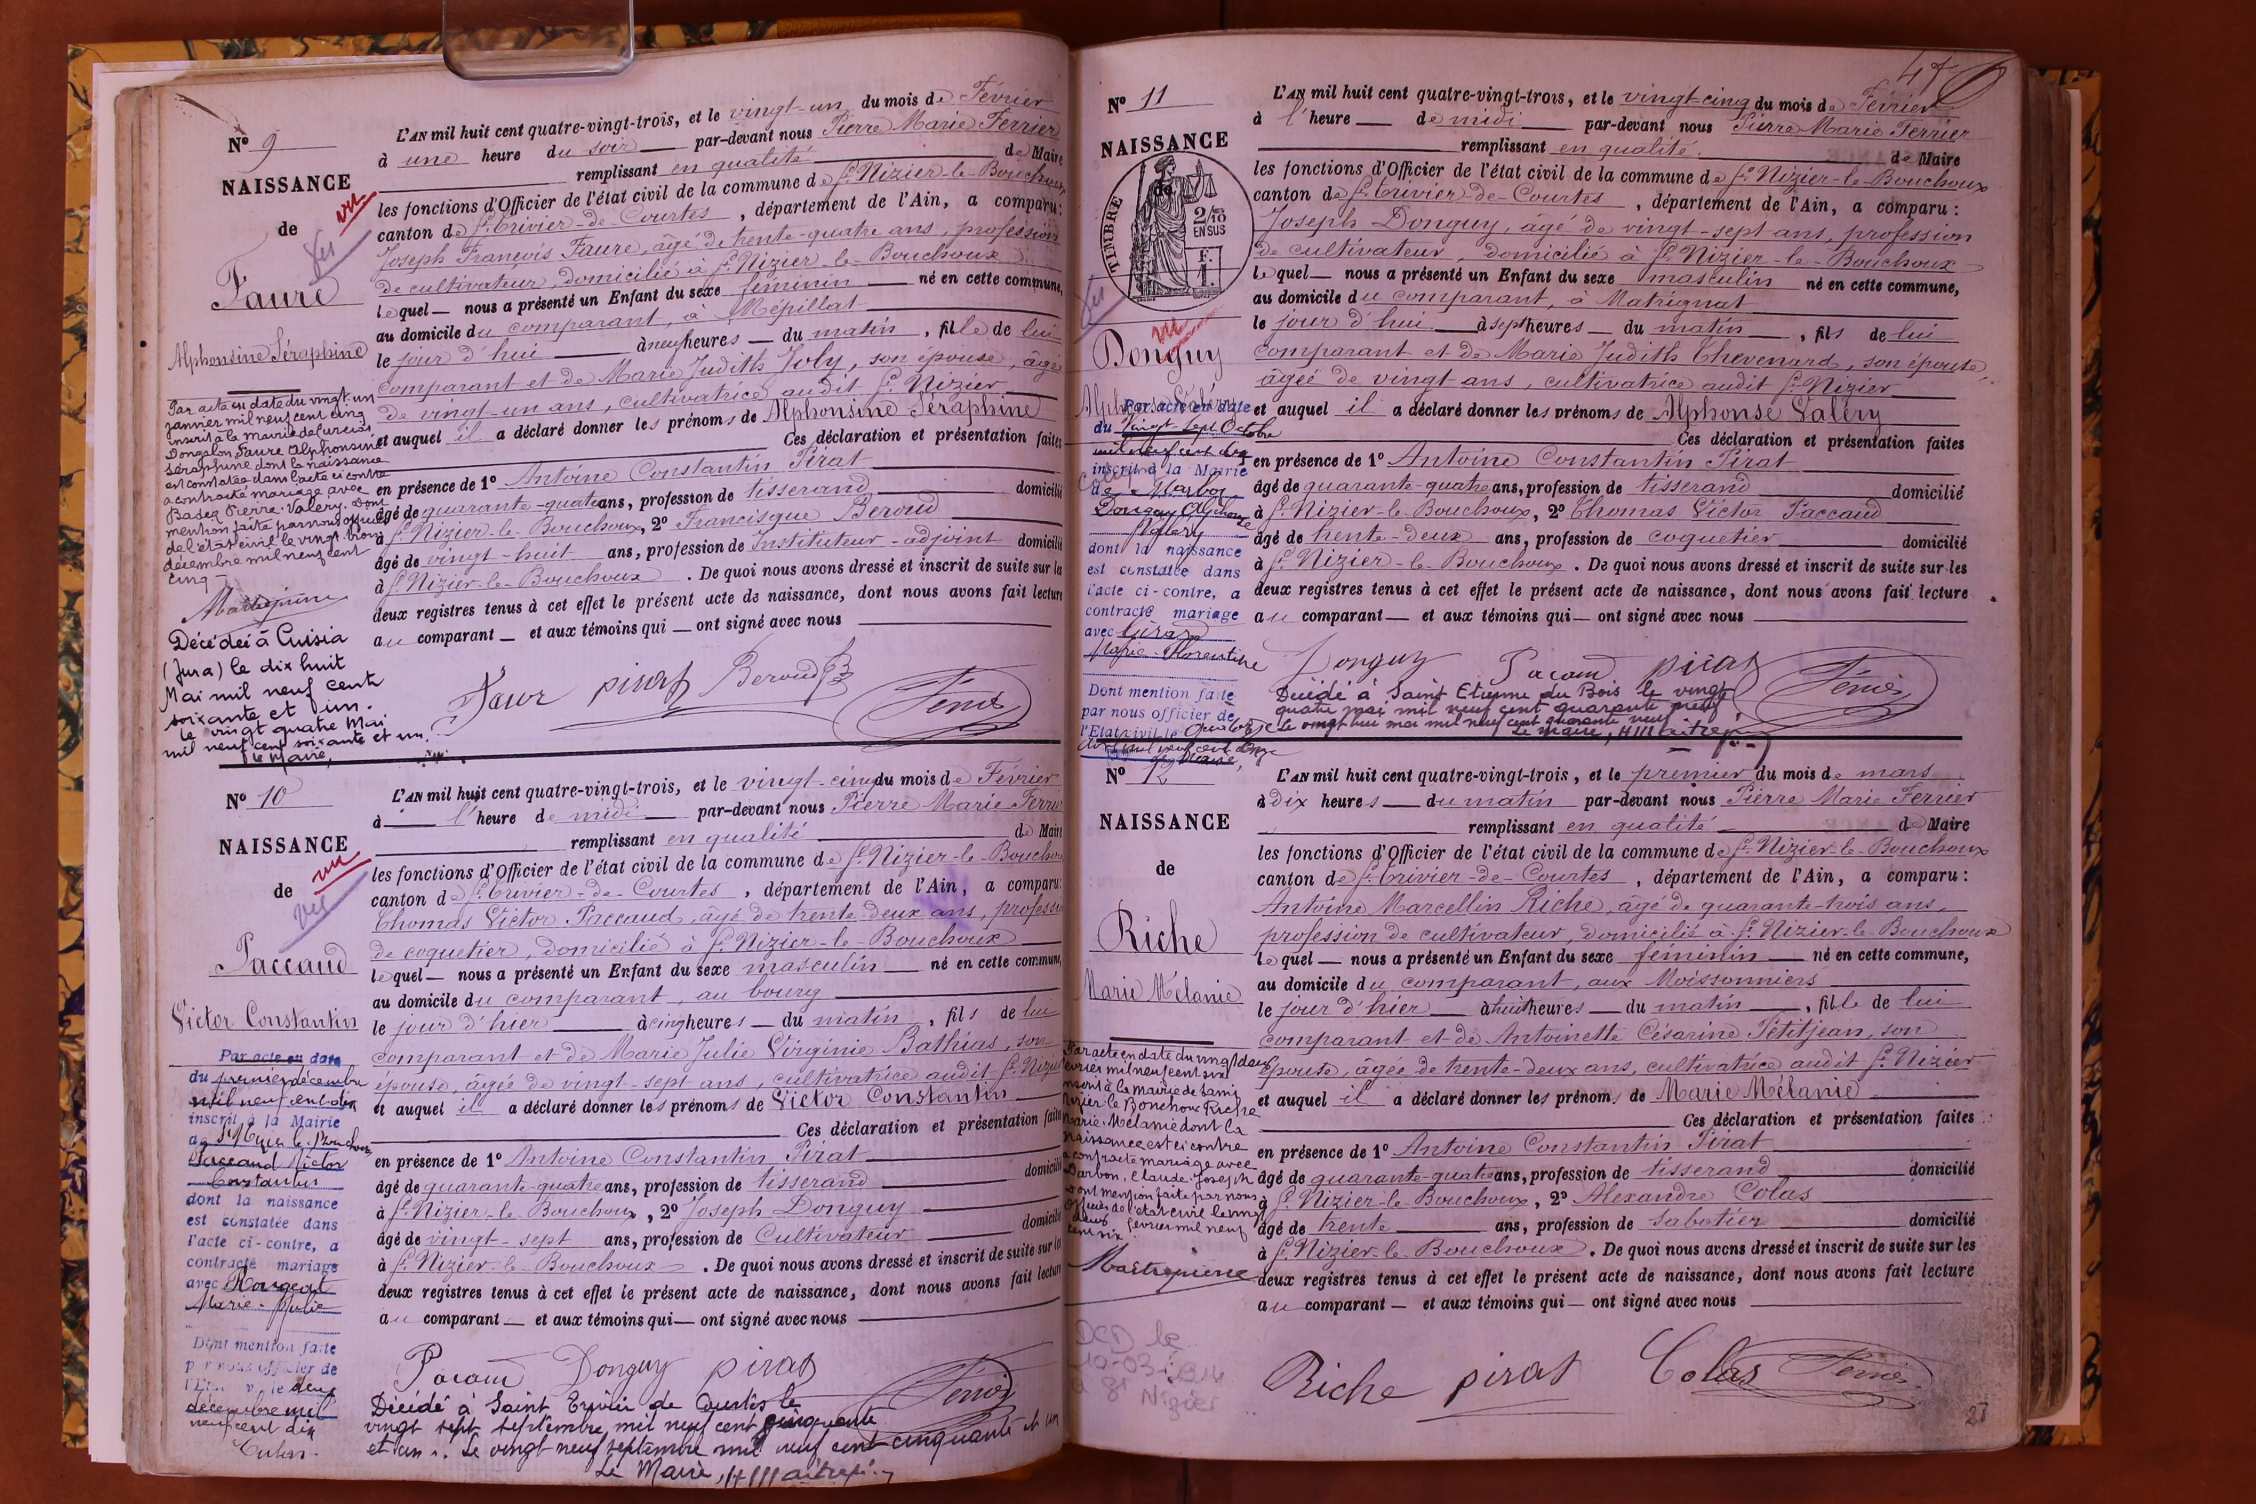 Nº 9
NAISSANCE
de
vu
Faure
Alphonsine Séraphine
Par acte en date du vingt un
janvier mil neuf cent cinq
inscrit à la mairie de Curciat
Dongalon, Faure Alphonsine
Séraphine dont la naissance
est constatée dans l'acte ci contre
a contracté mariage avec
Pierre Valery. Dont
mention faite par nous officier
de l'état civil le vingt
décembre mil neuf cent
cinq
Décédée à Cuisia
(Jura) le dix huit
Mai mil neuf cent
soixante et un.
Le vingt quatre Mai
mil neuf cent soixante et un.
Le Maire,
L'AN mil huit cent quatre-vingt-trois, et le vingt-un du mois de Février
à une heure du soir par-devant nous Pierre Marie Ferrier
remplissant en qualité de Maire
les fonctions d'Officier de l'état civil de la commune de St Nizier-le-Bouchoux
canton de St Trivier-de-Courtes, département de l'Ain, a comparu :
Joseph François Faure, âgé de trente-quatre ans, profession
de cultivateur, domicilié à St Nizier-le-Bouchoux
lequel nous a présenté un Enfant du sexe féminin né en cette commune,
au domicile du comparant, à Mépillat
le jour d'hui à neuf heures du matin, fille de lui
comparant et de Marie Judith Joly, son épouse, âgée
de vingt-un ans, cultivatrice audit St Nizier
et auquel il a déclaré donner les prénoms de Alphonsine Séraphine
Ces déclaration et présentation faites
en présence de 1º Antoine Constantin Pirat
âgé de quarante-quatre ans, profession de tisserand domicilié
à St Nizier-le-Bouchoux, 2º Francisque Beroud
âgé de vingt-huit ans, profession de Instituteur-adjoint domicilié
à St Nizier-le-Bouchoux. De quoi nous avons dressé et inscrit de suite sur les
deux registres tenus à cet effet le présent acte de naissance, dont nous avons fait lecture
au comparant et aux témoins qui ont signé avec nous
Faure pirat Beroud Ferrier
Nº 10
NAISSANCE
de
vu
vu
Paccaud
Victor Constantin
Par acte en date
du premier décembre
mil neuf cent dix
inscrit à la Mairie
de St Nizier le Bouchoux
Paccaud Victor
Constantin
dont la naissance
est constatée dans
l'acte ci-contre, a
contracté mariage
avec Rougeat
Marie-Julie
Dont mention faite
par nous officier de
l'Etat civil le deux
décembre mil
neuf cent dix
L'AN mil huit cent quatre-vingt-trois, et le vingt-cinq du mois de Février
à l'heure de midi par-devant nous Pierre Marie Ferrier
remplissant en qualité de Maire
les fonctions d'Officier de l'état civil de la commune de St Nizier-le-Bouchoux
canton de St Trivier-de-Courtes, département de l'Ain, a comparu :
Thomas Victor Paccaud, âgé de trente-deux ans, profession
de coquetier, domicilié à St Nizier-le-Bouchoux
lequel nous a présenté un Enfant du sexe masculin né en cette commune,
au domicile du comparant, au bourg
le jour d'hier à cinq heures du matin, fils de lui
comparant et de Marie Julie Virginie Bathias, son
épouse, âgée de vingt-sept ans, cultivatrice audit St Nizier
et auquel il a déclaré donner les prénoms de Victor Constantin
Ces déclaration et présentation faites
en présence de 1º Antoine Constantin Pirat
âgé de quarante-quatre ans, profession de tisserand domicilié
à St Nizier-le-Bouchoux, 2º Joseph Donguy
âgé de vingt-sept ans, profession de Cultivateur domicilié
à St Nizier-le-Bouchoux. De quoi nous avons dressé et inscrit de suite sur les
deux registres tenus à cet effet le présent acte de naissance, dont nous avons fait lecture
au comparant et aux témoins qui ont signé avec nous
Pacaud Donguy pirat Ferrier
Décédé à Saint Trivier de Courtes le
vingt sept septembre mil neuf cent cinquante
et un. Le vingt neuf septembre mil neuf cent cinquante et un
Le Maire,
47
Nº 11
NAISSANCE
de
TIMBRE
2/10 EN SUS
F. 1.
vu
Donguy
Alphonse Valéry
Par acte en date
du Vingt-sept Octobre
mil neuf cent dix
inscrit à la Mairie
de Marboz
Donguy Alphonse
Valery
dont la naissance
est constatée dans
l'acte ci-contre, a
contracté mariage
avec
Marie-Florentine
Dont mention faite
par nous officier de
l'Etat civil le
L'AN mil huit cent quatre-vingt-trois, et le vingt-cinq du mois de Février
à l'heure de midi par-devant nous Pierre Marie Ferrier
remplissant en qualité de Maire
les fonctions d'Officier de l'état civil de la commune de St Nizier-le-Bouchoux
canton de St Trivier-de-Courtes, département de l'Ain, a comparu :
Joseph Donguy, âgé de vingt-sept ans, profession
de cultivateur, domicilié à St Nizier-le-Bouchoux
lequel nous a présenté un Enfant du sexe masculin né en cette commune,
au domicile du comparant, à Matrignat
le jour d'hui à sept heures du matin, fils de lui
comparant et de Marie Judith Thevenard, son épouse,
âgée de vingt ans, cultivatrice audit St Nizier
et auquel il a déclaré donner les prénoms de Alphonse Valéry
Ces déclaration et présentation faites
en présence de 1º Antoine Constantin Pirat
âgé de quarante-quatre ans, profession de tisserand domicilié
à St Nizier-le-Bouchoux, 2º Thomas Victor Paccaud
âgé de trente-deux ans, profession de coquetier domicilié
à St Nizier-le-Bouchoux. De quoi nous avons dressé et inscrit de suite sur les
deux registres tenus à cet effet le présent acte de naissance, dont nous avons fait lecture
au comparant et aux témoins qui ont signé avec nous
Donguy Pacaud pirat Ferrier
Décédé à Saint Etienne du Bois le vingt
quatre mai mil neuf cent quarante neuf
Le vingt huit mai mil neuf cent quarante neuf
Le Maire,
Nº 12
NAISSANCE
de
Riche
Marie Mélanie
Par acte en date du vingt deux
février mil neuf cent six
inscrit à la mairie de Saint
Nizier-le-Bouchoux Riche
Marie-Mélanie dont la
naissance est ci contre
a contracté mariage avec
Darbon, Claude-Joseph
Dont mention faite par nous
officier de l'état civil le vingt
deux février mil neuf
cent six.
DCD le
10-03-
à St Nizier
L'AN mil huit cent quatre-vingt-trois, et le premier du mois de mars
à dix heures du matin par-devant nous Pierre Marie Ferrier
remplissant en qualité de Maire
les fonctions d'Officier de l'état civil de la commune de St Nizier-le-Bouchoux
canton de St Trivier-de-Courtes, département de l'Ain, a comparu :
Antoine Marcellin Riche, âgé de quarante-trois ans,
profession de cultivateur, domicilié à St Nizier-le-Bouchoux
lequel nous a présenté un Enfant du sexe féminin né en cette commune,
au domicile du comparant, aux Moissonniers
le jour d'hier à huit heures du matin, fille de lui
comparant et de Antoinette Césarine Petitjean, son
épouse, âgée de trente-deux ans, cultivatrice audit St Nizier
et auquel il a déclaré donner les prénoms de Marie Mélanie
Ces déclaration et présentation faites
en présence de 1º Antoine Constantin Pirat
âgé de quarante-quatre ans, profession de tisserand domicilié
à St Nizier-le-Bouchoux, 2º Alexandre Colas
âgé de trente ans, profession de sabotier domicilié
à St Nizier-le-Bouchoux. De quoi nous avons dressé et inscrit de suite sur les
deux registres tenus à cet effet le présent acte de naissance, dont nous avons fait lecture
au comparant et aux témoins qui ont signé avec nous
Riche pirat Colas Ferrier
27